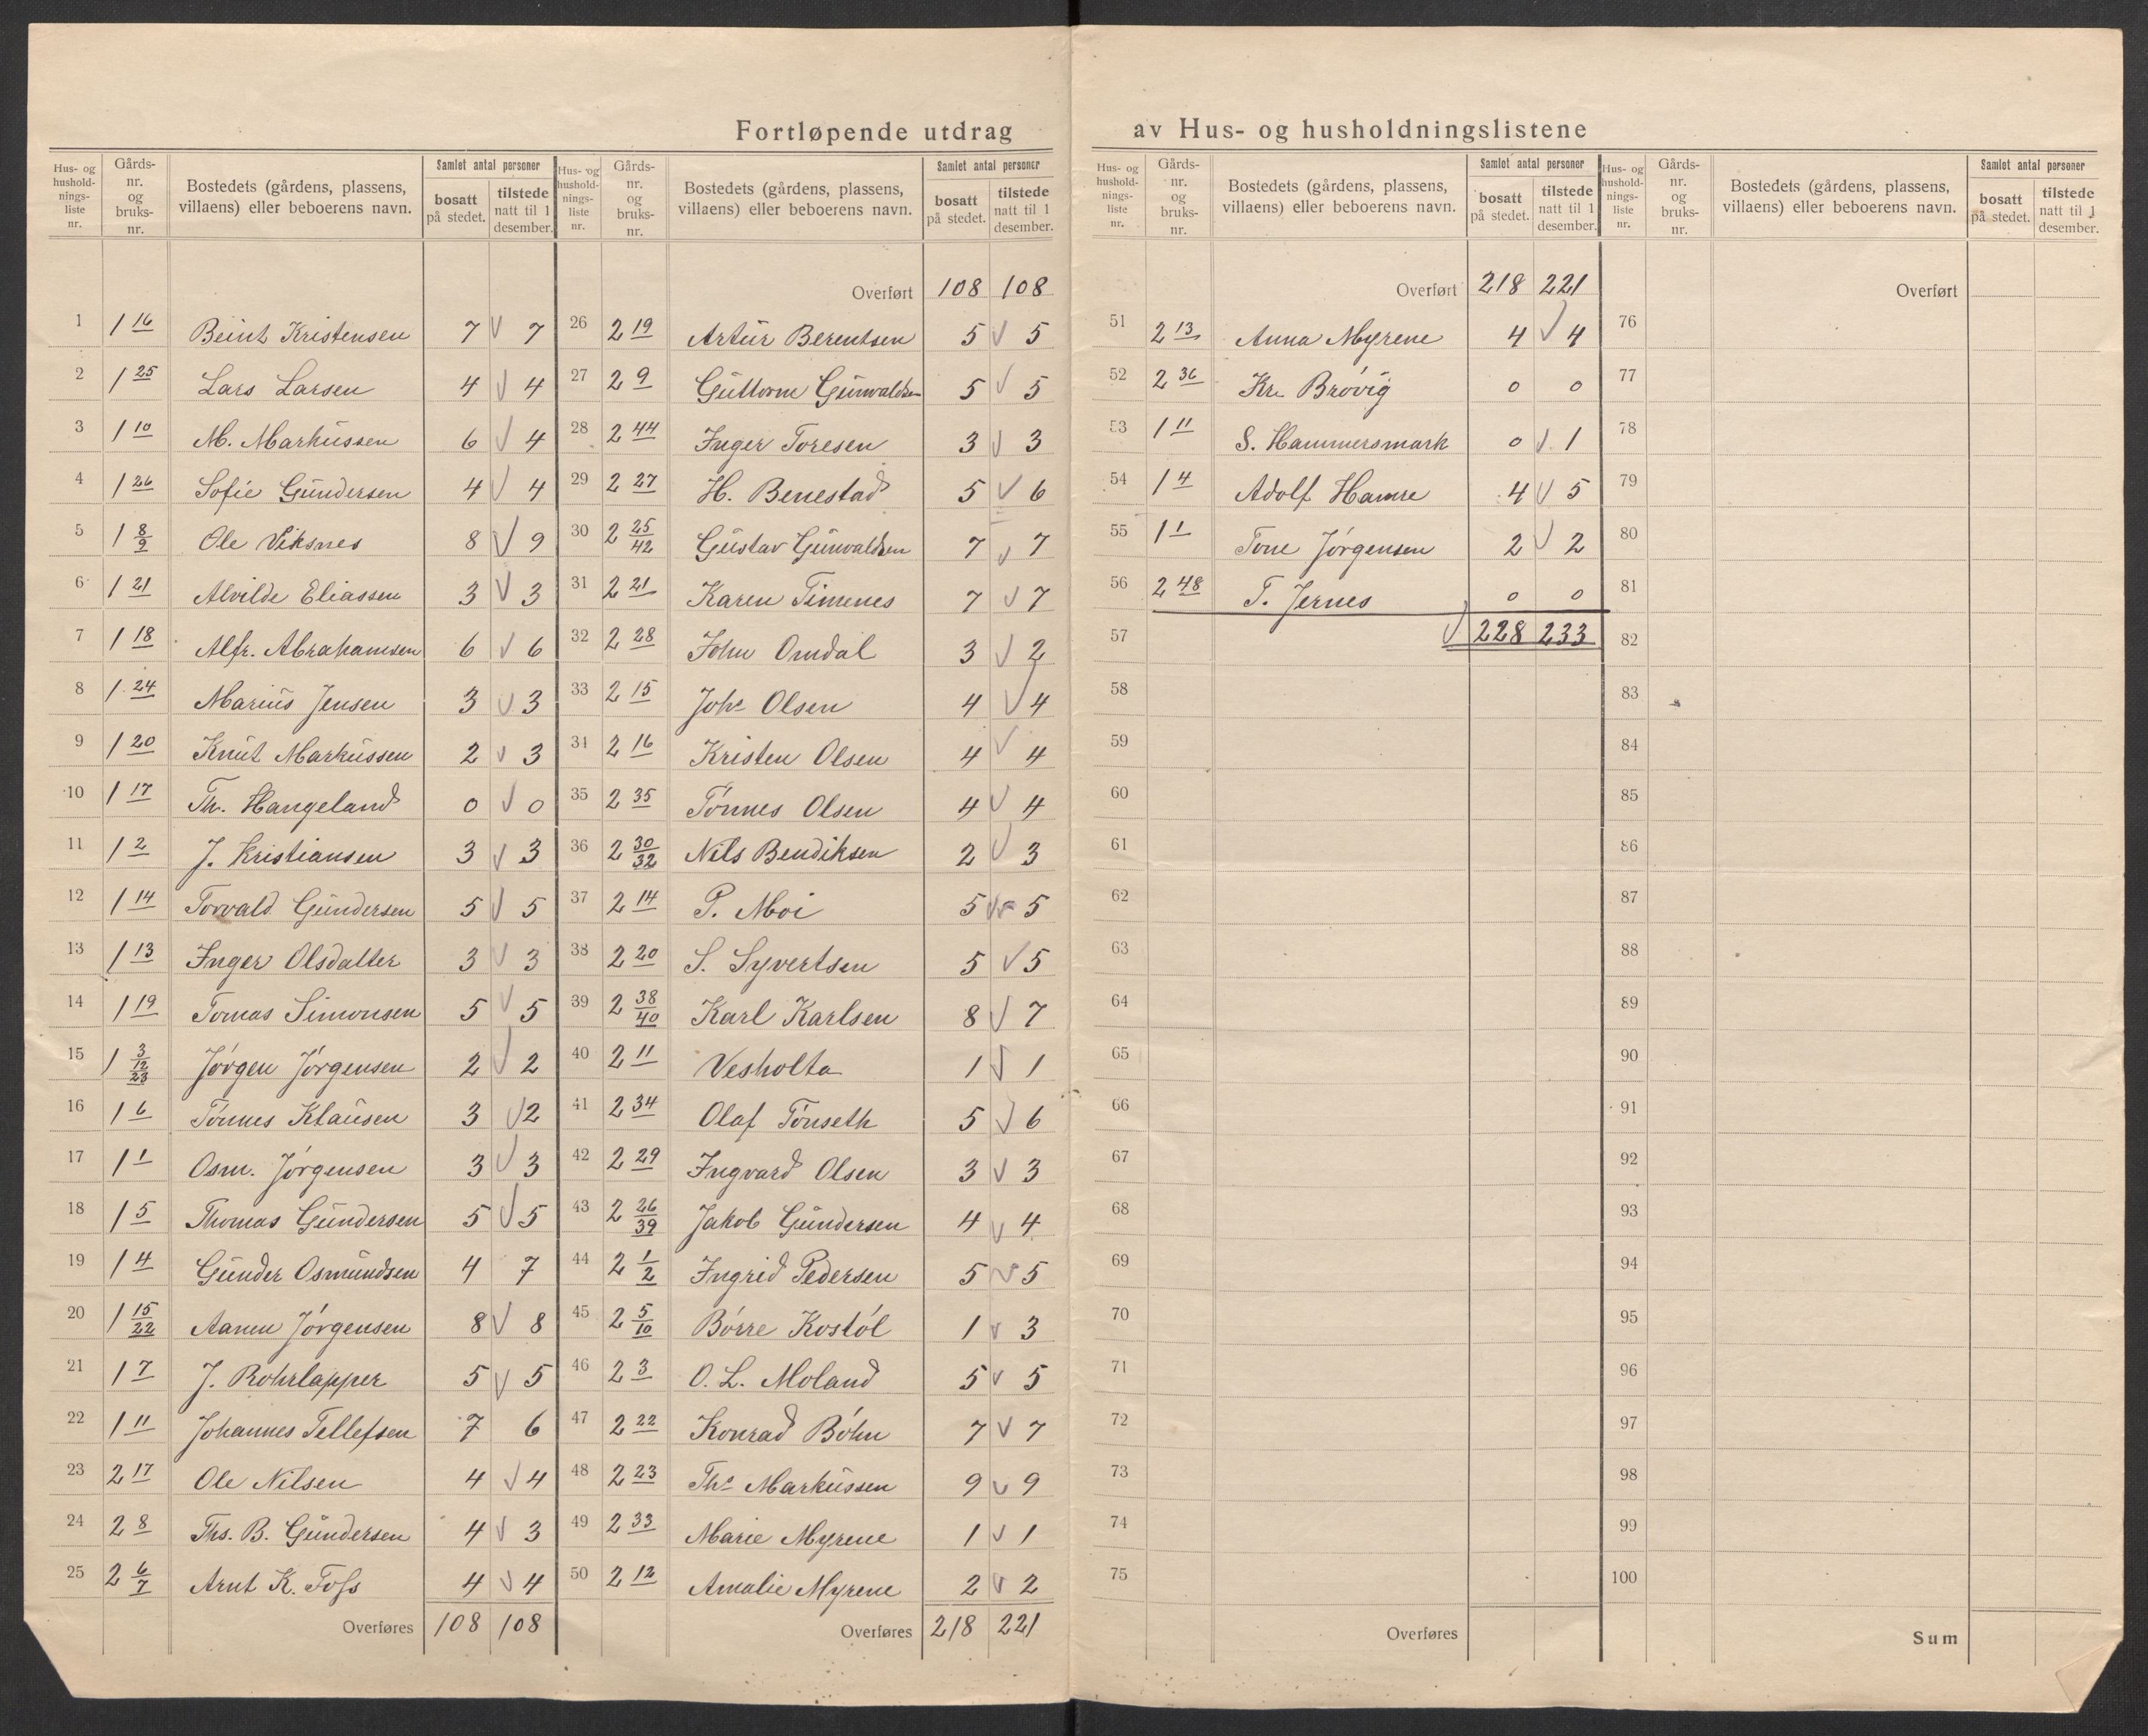 Fortløpende utdrag av Hus- og husholdningslistene
Hus- og hushold-nings-liste nr. | Gårds-nr. og bruks-nr. | Bostedets (gårdens, plassens, villaens) eller beboerens navn. | Samlet antal personer | bosatt på stedet. | tilstede natt til 1 desember.
1 | 1 16 | Beint Kristensen | 7 | 7
2 | 1 25 | Lars Larsen | 4 | 4
3 | 1 10 | M. Markussen | 6 | 4
4 | 1 26 | Sofie Gundersen | 4 | 4
5 | 1 8/9 | Ole Viksnes | 8 | 9
6 | 1 21 | Alvilde Eliassen | 3 | 3
7 | 1 18 | Alfr. Abrahamsen | 6 | 6
8 | 1 24 | Marius Jensen | 3 | 3
9 | 1 20 | Knut Markussen | 2 | 3
10 | 1 17 | Th. Hangeland | 0 | 0
11 | 1 2 | J. Kristiansen | 3 | 3
12 | 1 14 | Torvald Gundersen | 5 | 5
13 | 1 13 | Inger Olsdatter | 3 | 3
14 | 1 19 | Tomas Simonsen | 5 | 5
15 | 1 3/12/23 | Jørgen Jørgensen | 2 | 2
16 | 1 6 | Tønnes Klausen | 3 | 2
17 | 1 1 | Osm. Jørgensen | 3 | 3
18 | 1 5 | Thomas Gundersen | 5 | 5
19 | 1 4 | Gunder Osmundsen | 4 | 7
20 | 1 15/22 | Aanen Jørgensen | 8 | 8
21 | 1 7 | J. Rohrlapper | 5 | 5
22 | 1 11 | Johannes Tellefsen | 7 | 6
23 | 2 17 | Ole Nilsen | 4 | 4
24 | 2 8 | Ths. B. Gundersen | 4 | 3
25 | 2 6/7 | Arnt K. Foss | 4 | 4
Overføres | 108 | 108
Hus- og hushold-nings-liste nr. | Gårds-nr. og bruks-nr. | Bostedets (gårdens, plassens, villaens) eller beboerens navn. | Samlet antal personer | bosatt på stedet. | tilstede natt til 1 desember.
Overført | 108 | 108
26 | 2 19 | Artur Berentsen | 5 | 5
27 | 2 9 | Guttorm Gunvaldsen | 5 | 5
28 | 2 44 | Inger Toresen | 3 | 3
29 | 2 27 | H. Benestad | 5 | 6
30 | 2 25/42 | Gustav Gunvaldsen | 7 | 7
31 | 2 21 | Karen Timenes | 7 | 7
32 | 2 28 | John Omdal | 3 | 2
33 | 2 15 | Johs Olsen | 4 | 4
34 | 2 16 | Kristen Olsen | 4 | 4
35 | 2 35 | Tønnes Olsen | 4 | 4
36 | 2 30/32 | Nils Bendiksen | 2 | 3
37 | 2 14 | P. Moi | 5 | 5
38 | 2 20 | S. Syvertsen | 5 | 5
39 | 2 38/40 | Karl Karlsen | 8 | 7
40 | 2 11 | Vesholta | 1 | 1
41 | 2 34 | Olaf Tønseth | 5 | 6
42 | 2 29 | Ingvard Olsen | 3 | 3
43 | 2 26/39 | Jakob Gundersen | 4 | 4
44 | 2 1/2 | Ingrid Pedersen | 5 | 5
45 | 2 5/10 | Børre Kostøl | 1 | 3
46 | 2 3 | O. L. Moland | 5 | 5
47 | 2 22 | Konrad Bøhn | 7 | 7
48 | 2 23 | Ths Markussen | 9 | 9
49 | 2 33 | Marie Myrene | 1 | 1
50 | 2 12 | Amalie Myrene | 2 | 2
Overføres | 218 | 221
Hus- og hushold-nings-liste nr. | Gårds-nr. og bruks-nr. | Bostedets (gårdens, plassens, villaens) eller beboerens navn. | Samlet antal personer | bosatt på stedet. | tilstede natt til 1 desember.
Overført | 218 | 221
51 | 2 13 | Anna Myrene | 4 | 4
52 | 2 36 | Kr. Brøvig | 0 | 0
53 | 1 11 | S. Hammersmark | 0 | 1
54 | 1 4 | Adolf Hamre | 4 | 5
55 | 1 1 | Tone Jørgensen | 2 | 2
56 | 2 48 | T. Jernes | 0 | 0
57 | 228 | 233
58
59
60
61
62
63
64
65
66
67
68
69
70
71
72
73
74
75
Overføres
Hus- og hushold-nings-liste nr. | Gårds-nr. og bruks-nr. | Bostedets (gårdens, plassens, villaens) eller beboerens navn. | Samlet antal personer | bosatt på stedet. | tilstede natt til 1 desember.
Overført
76
77
78
79
80
81
82
83
84
85
86
87
88
89
90
91
92
93
94
95
96
97
98
99
100
Sum